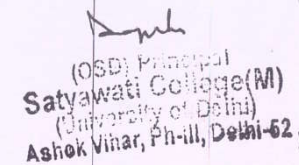 (OSD) Principal
Satyawati College(M)
(University of Delhi)
Ashok Vihar, Ph-III, Delhi-52